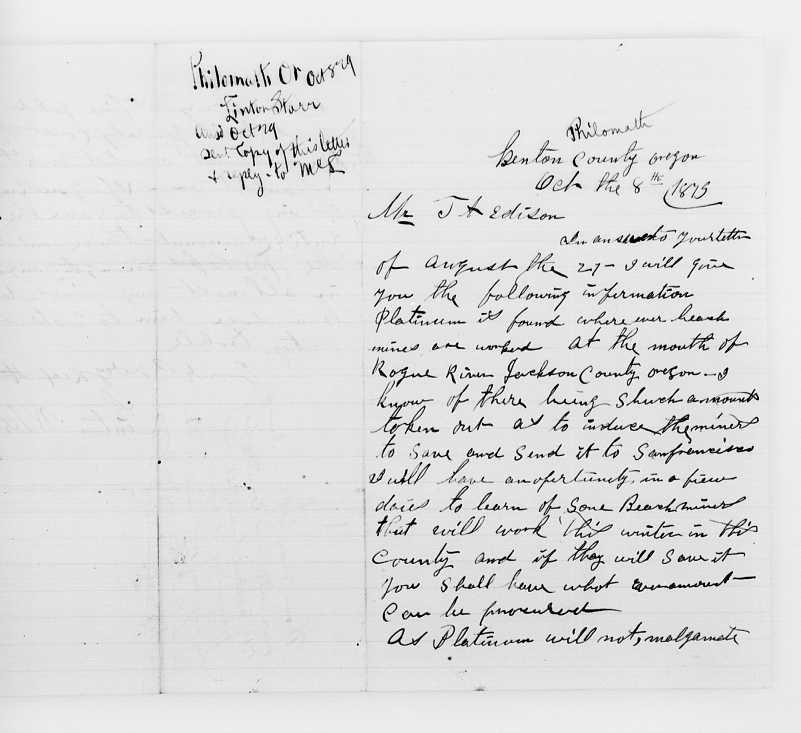 Philomath Or Oct 8 79
Linton Starr
ans Oct 79
Sent Copy of this letter
& reply to McL
Philomath
Benton County oregon
Oct the 8th 1879
Mr T A Edison
In answer to Your letter
of August the 27 - I will give
you the following information
Platinum is found where ever beach
mines are worked At the mouth of
Rogue River Jackson County oregon - I
know of there being Shuch amounts
taken out as to induce the miners
to Save and Send it to Sanfrancisco
I will have an opertunity in a fiew
daies to learn of Some Beach miners
that will work this winter in this
County and if they will Save it
you Shall have what amount
Can be procured
As Platinum will not, malgamate